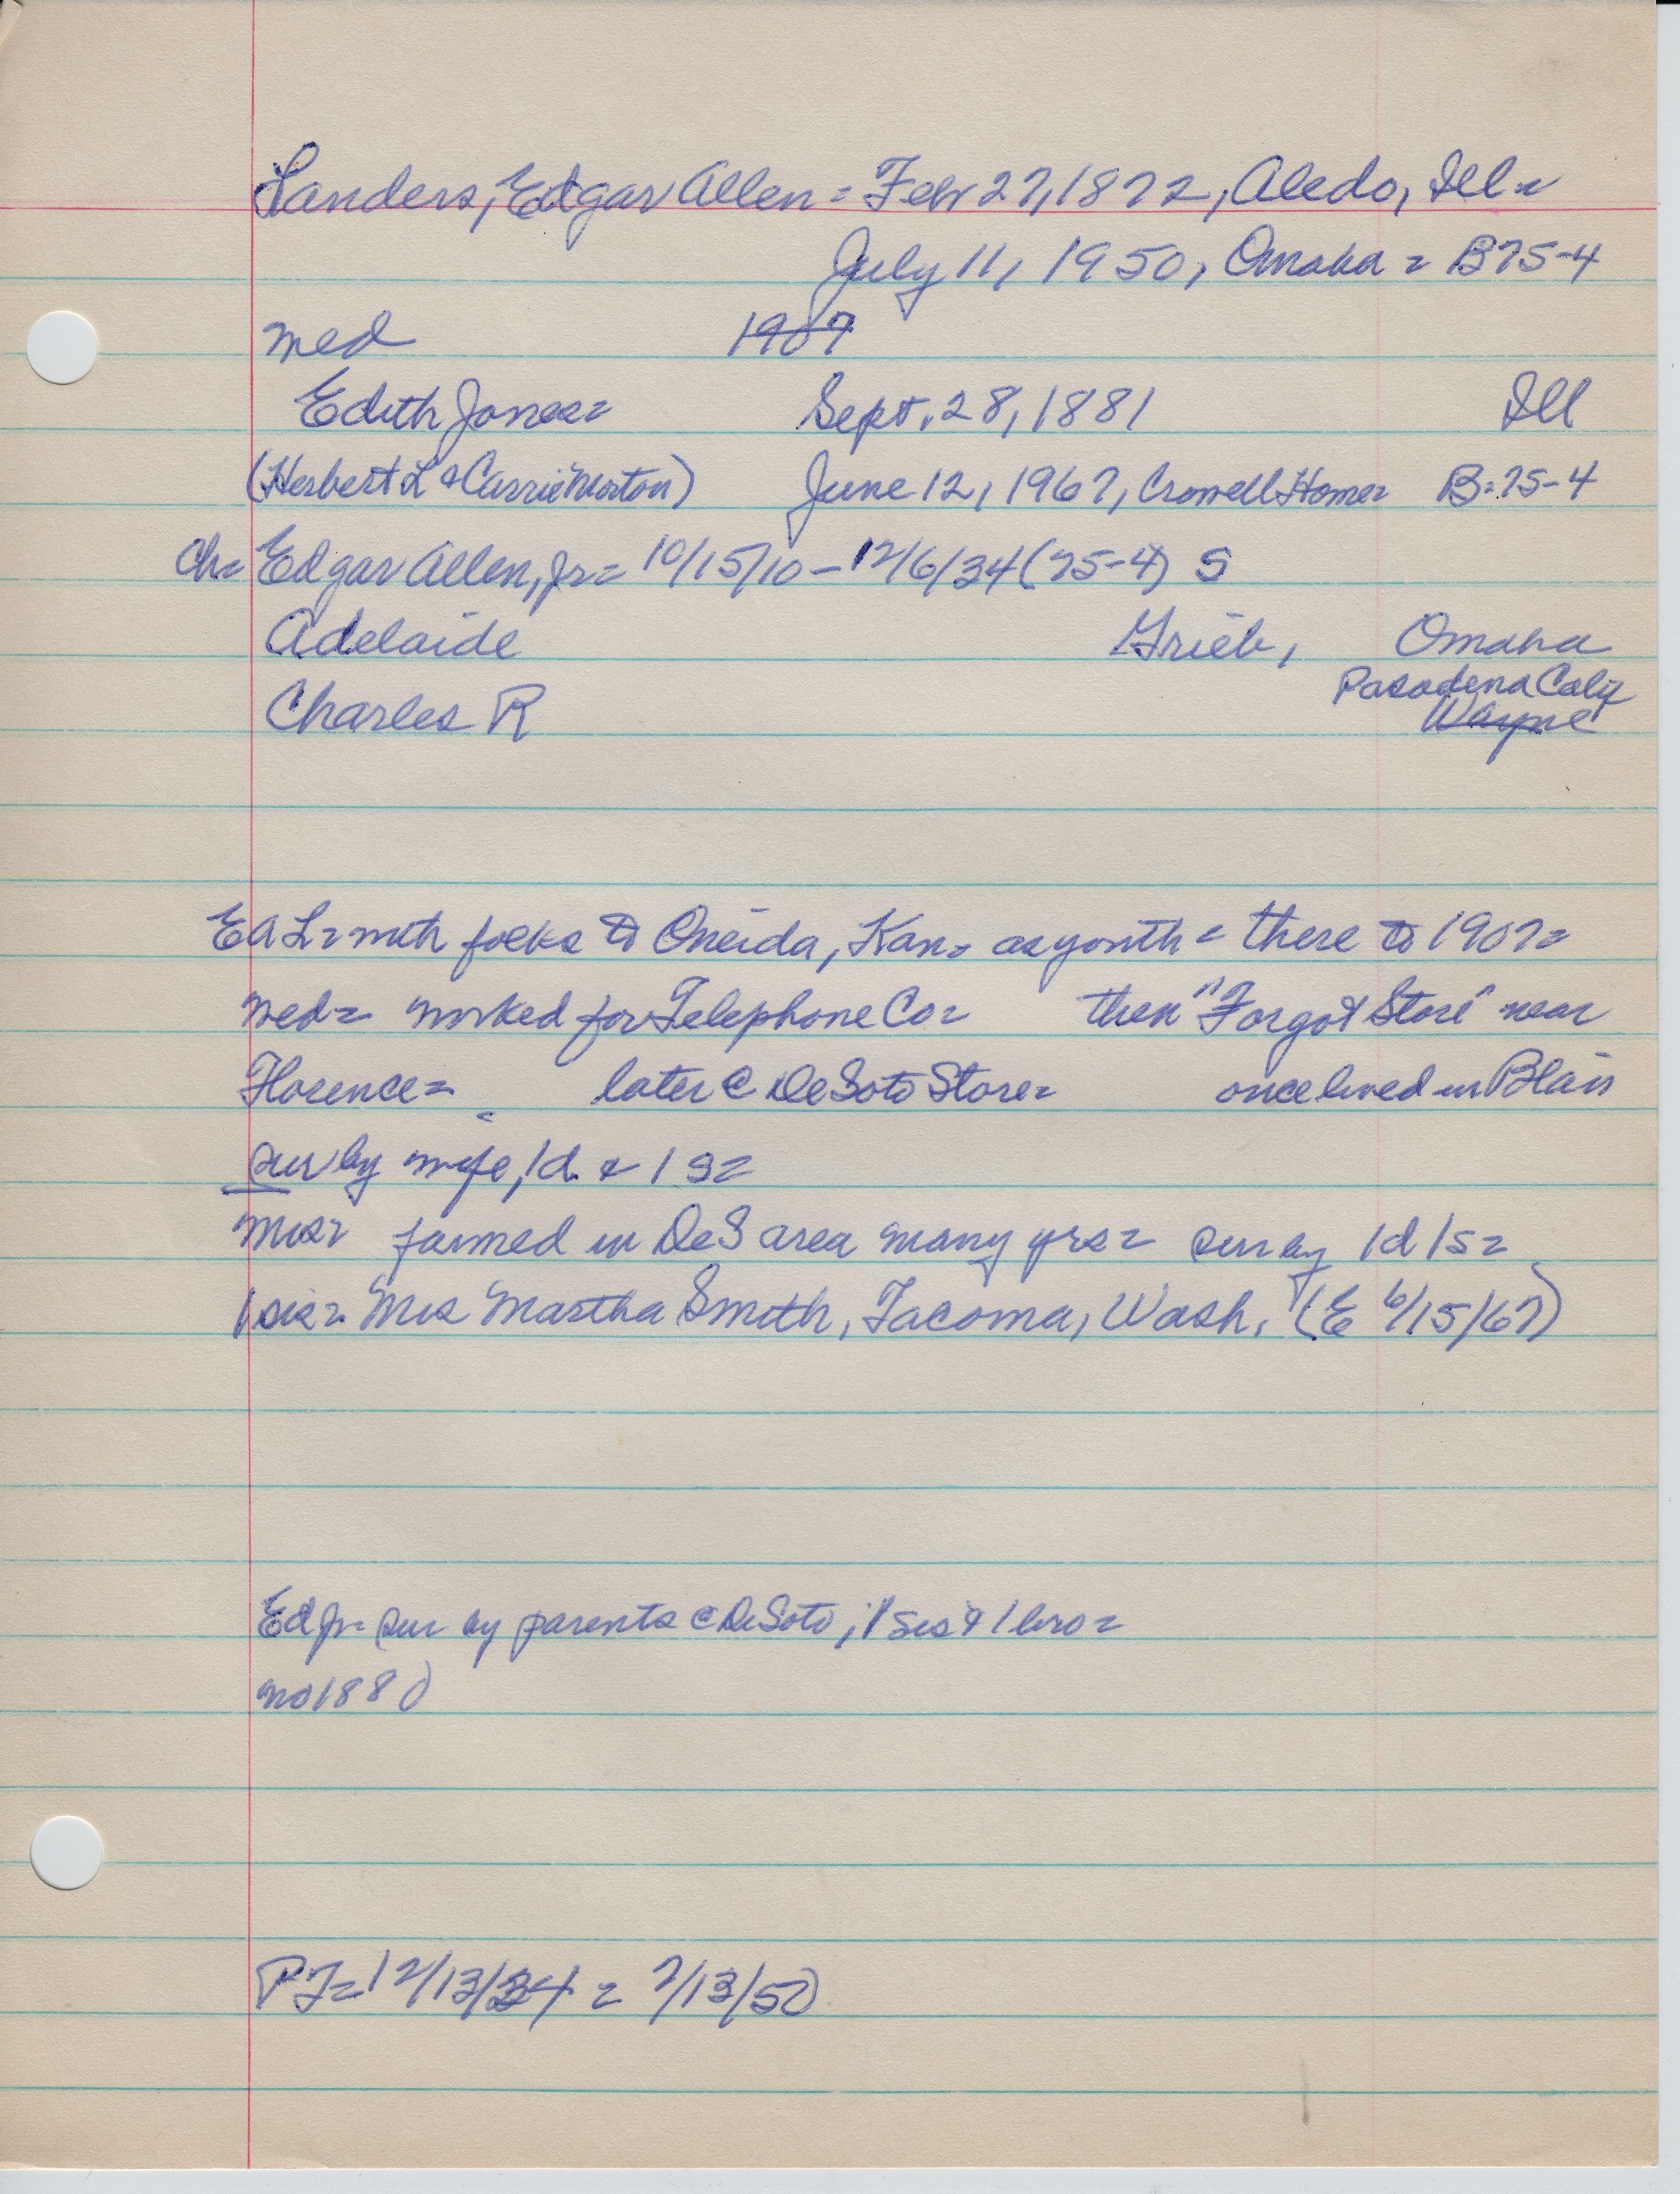 Landers, Edgar Allen = Feb 27, 1872, Aledo, Ill =
July 11, 1950, Omaha = B 75-4
med 1907
Edith Jones = Sept. 28, 1881 Ill
(Herbert L & Carrie Morton) June 12, 1967, Crowell Home = B = 75-4
Ch = Edgar Allen, Jr = 10/15/10 - 12/6/34 (75-4) S
Adelaide Grieb, Omaha
Pasadena Calif
Charles R Wayne
EAL = with folks to Oneida, Kan = as youth = there to 1907 =
med = worked for Telephone Co = then "Forgot Store" near
Florence = later @ DeSoto Store = once lived in Blair
sur by wife, 1 d & 1 s =
Mrs = farmed in DeS area many yrs = sur by 1 d 1 s =
1 sis = Mrs Martha Smith, Tacoma, Wash. (E 6/15/67)
Ed Jr = sur by parents @ DeSoto, 1 sis & 1 bro =
no 1880
PT = 12/13/34 = 7/13/50